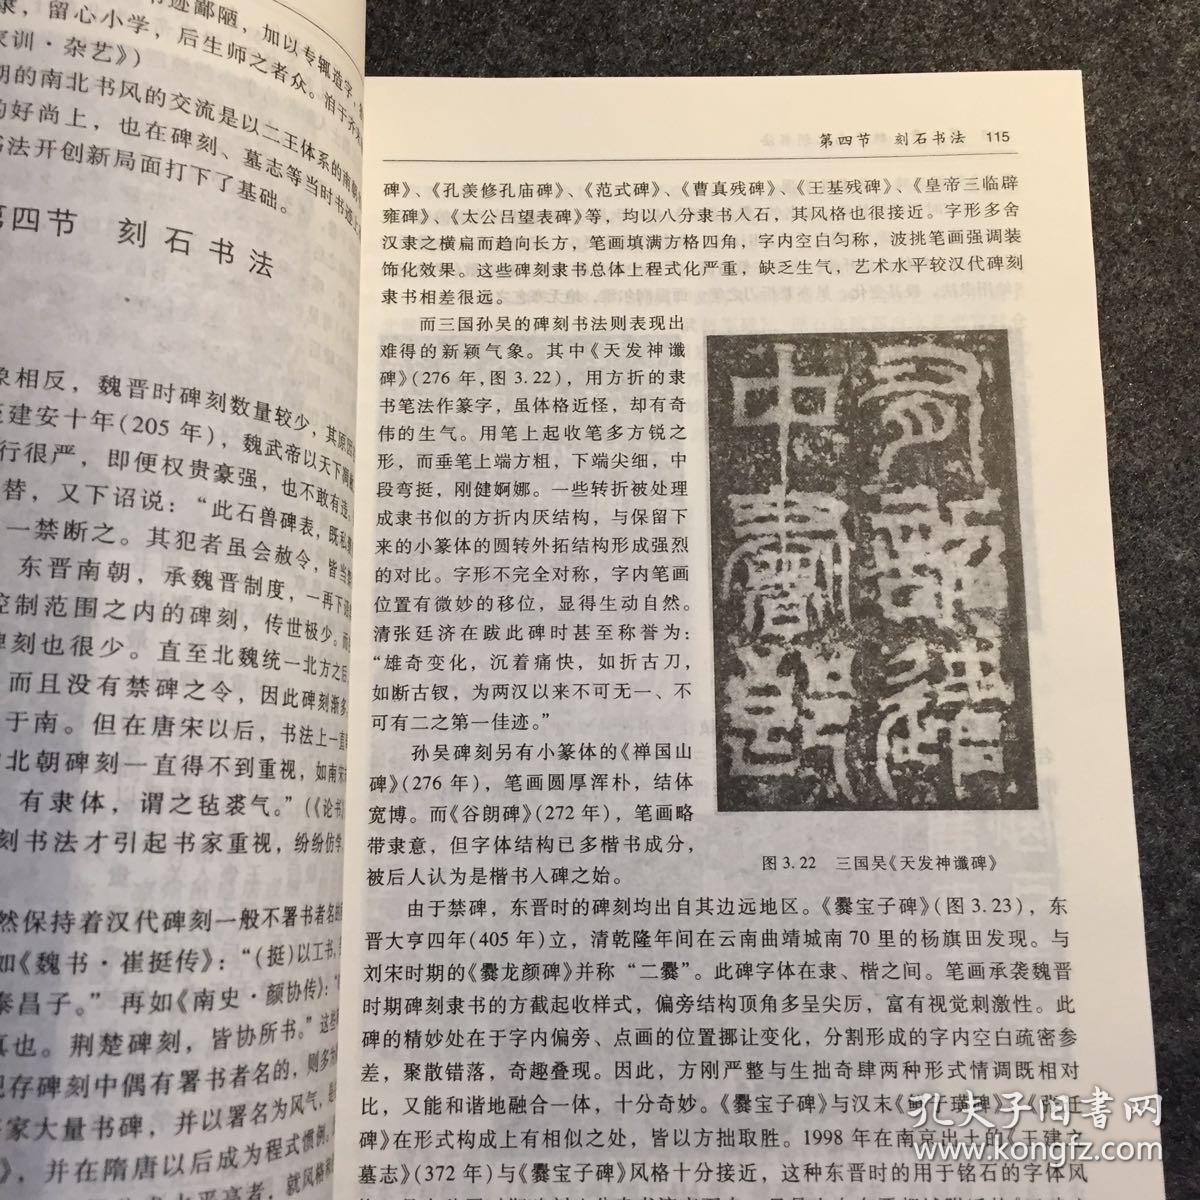 书迹鄙陋，加以专辄造字，
康，留心小学，后生师之者众。洎于齐
家训·杂艺》）
朝的南北书风的交流是以二王体系的南朝
的好尚上，也在碑刻、墓志等当时书迹上
书法开创新局面打下了基础。
第四节 刻石书法
象相反，魏晋时碑刻数量较少，其原因
至建安十年（205年），魏武帝以天下凋
行很严，即便权贵豪强，也不敢有造
替，又下诏说：“此石兽碑表，既私
一禁断之。其犯者虽会赦令，皆当
东晋南朝，承魏晋制度，一再下
控制范围之内的碑刻，传世极少。而
碑刻也很少。直至北魏统一北方之后
而且没有禁碑之令，因此碑刻渐多
于南。但在唐宋以后，书法上一直
北朝碑刻一直得不到重视，如南宋
有隶体，谓之毡裘气。”（《论书
刻书法才引起书家重视，纷纷仿学
然保持着汉代碑刻一般不署书者名的
如《魏书·崔挺传》：“（挺）以工书，
泰昌子。”再如《南史·颜协传》：“
真也。荆楚碑刻，皆协所书。”这些
现存碑刻中偶有署书者名的，则多为
家大量书碑，并以署名为风气，
》，并在隋唐以后成为程式惯例。
第四节 刻石书法 115
碑》、《孔羡修孔庙碑》、《范式碑》、《曹真残碑》、《王基残碑》、《皇帝三临辟
雍碑》、《太公吕望表碑》等，均以八分隶书入石，其风格也很接近。字形多舍
汉隶之横扁而趋向长方，笔画填满方格四角，字内空白匀称，波挑笔画强调装
饰化效果。这些碑刻隶书总体上程式化严重，缺乏生气，艺术水平较汉代碑刻
隶书相差很远。
而三国孙吴的碑刻书法则表现出
难得的新颖气象。其中《天发神谶
碑》（276年，图3.22），用方折的隶
书笔法作篆字，虽体格近怪，却有奇
伟的生气。用笔上起收笔多方锐之
形，而垂笔上端方粗，下端尖细，中
段弯挺，刚健婀娜。一些转折被处理
成隶书似的方折内厌结构，与保留下
来的小篆体的圆转外拓结构形成强烈
的对比。字形不完全对称，字内笔画
位置有微妙的移位，显得生动自然。
清张廷济在跋此碑时甚至称誉为：
“雄奇变化，沉着痛快，如折古刀，
如断古钗，为两汉以来不可无一、不
可有二之第一佳迹。”
孙吴碑刻另有小篆体的《禅国山
碑》（276年），笔画圆厚浑朴，结体
宽博。而《谷朗碑》（272年），笔画略
带隶意，但字体结构已多楷书成分，
被后人认为是楷书入碑之始。
图3.22 三国吴《天发神谶碑》
由于禁碑，东晋时的碑刻均出自其边远地区。《爨宝子碑》（图3.23），东
晋大亨四年（405年）立，清乾隆年间在云南曲靖城南70里的杨旗田发现。与
刘宋时期的《爨龙颜碑》并称“二爨”。此碑字体在隶、楷之间。笔画承袭魏晋
时期碑刻隶书的方截起收样式，偏旁结构顶角多呈尖厉，富有视觉刺激性。此
碑的精妙处在于字内偏旁、点画的位置挪让变化，分割形成的字内空白疏密参
差，聚散错落，奇趣叠现。因此，方刚严整与生拙奇肆两种形式情调既相对
比，又能和谐地融合一体，十分奇妙。《爨宝子碑》与汉末《鲜于璜碑》、《张迁
碑》在形式构成上有相似之处，皆以方拙取胜。1998年在南京出土的《王建之
墓志》（372年）与《爨宝子碑》风格十分接近，这种东晋时的用于铭石的字体风
孔夫子旧书网